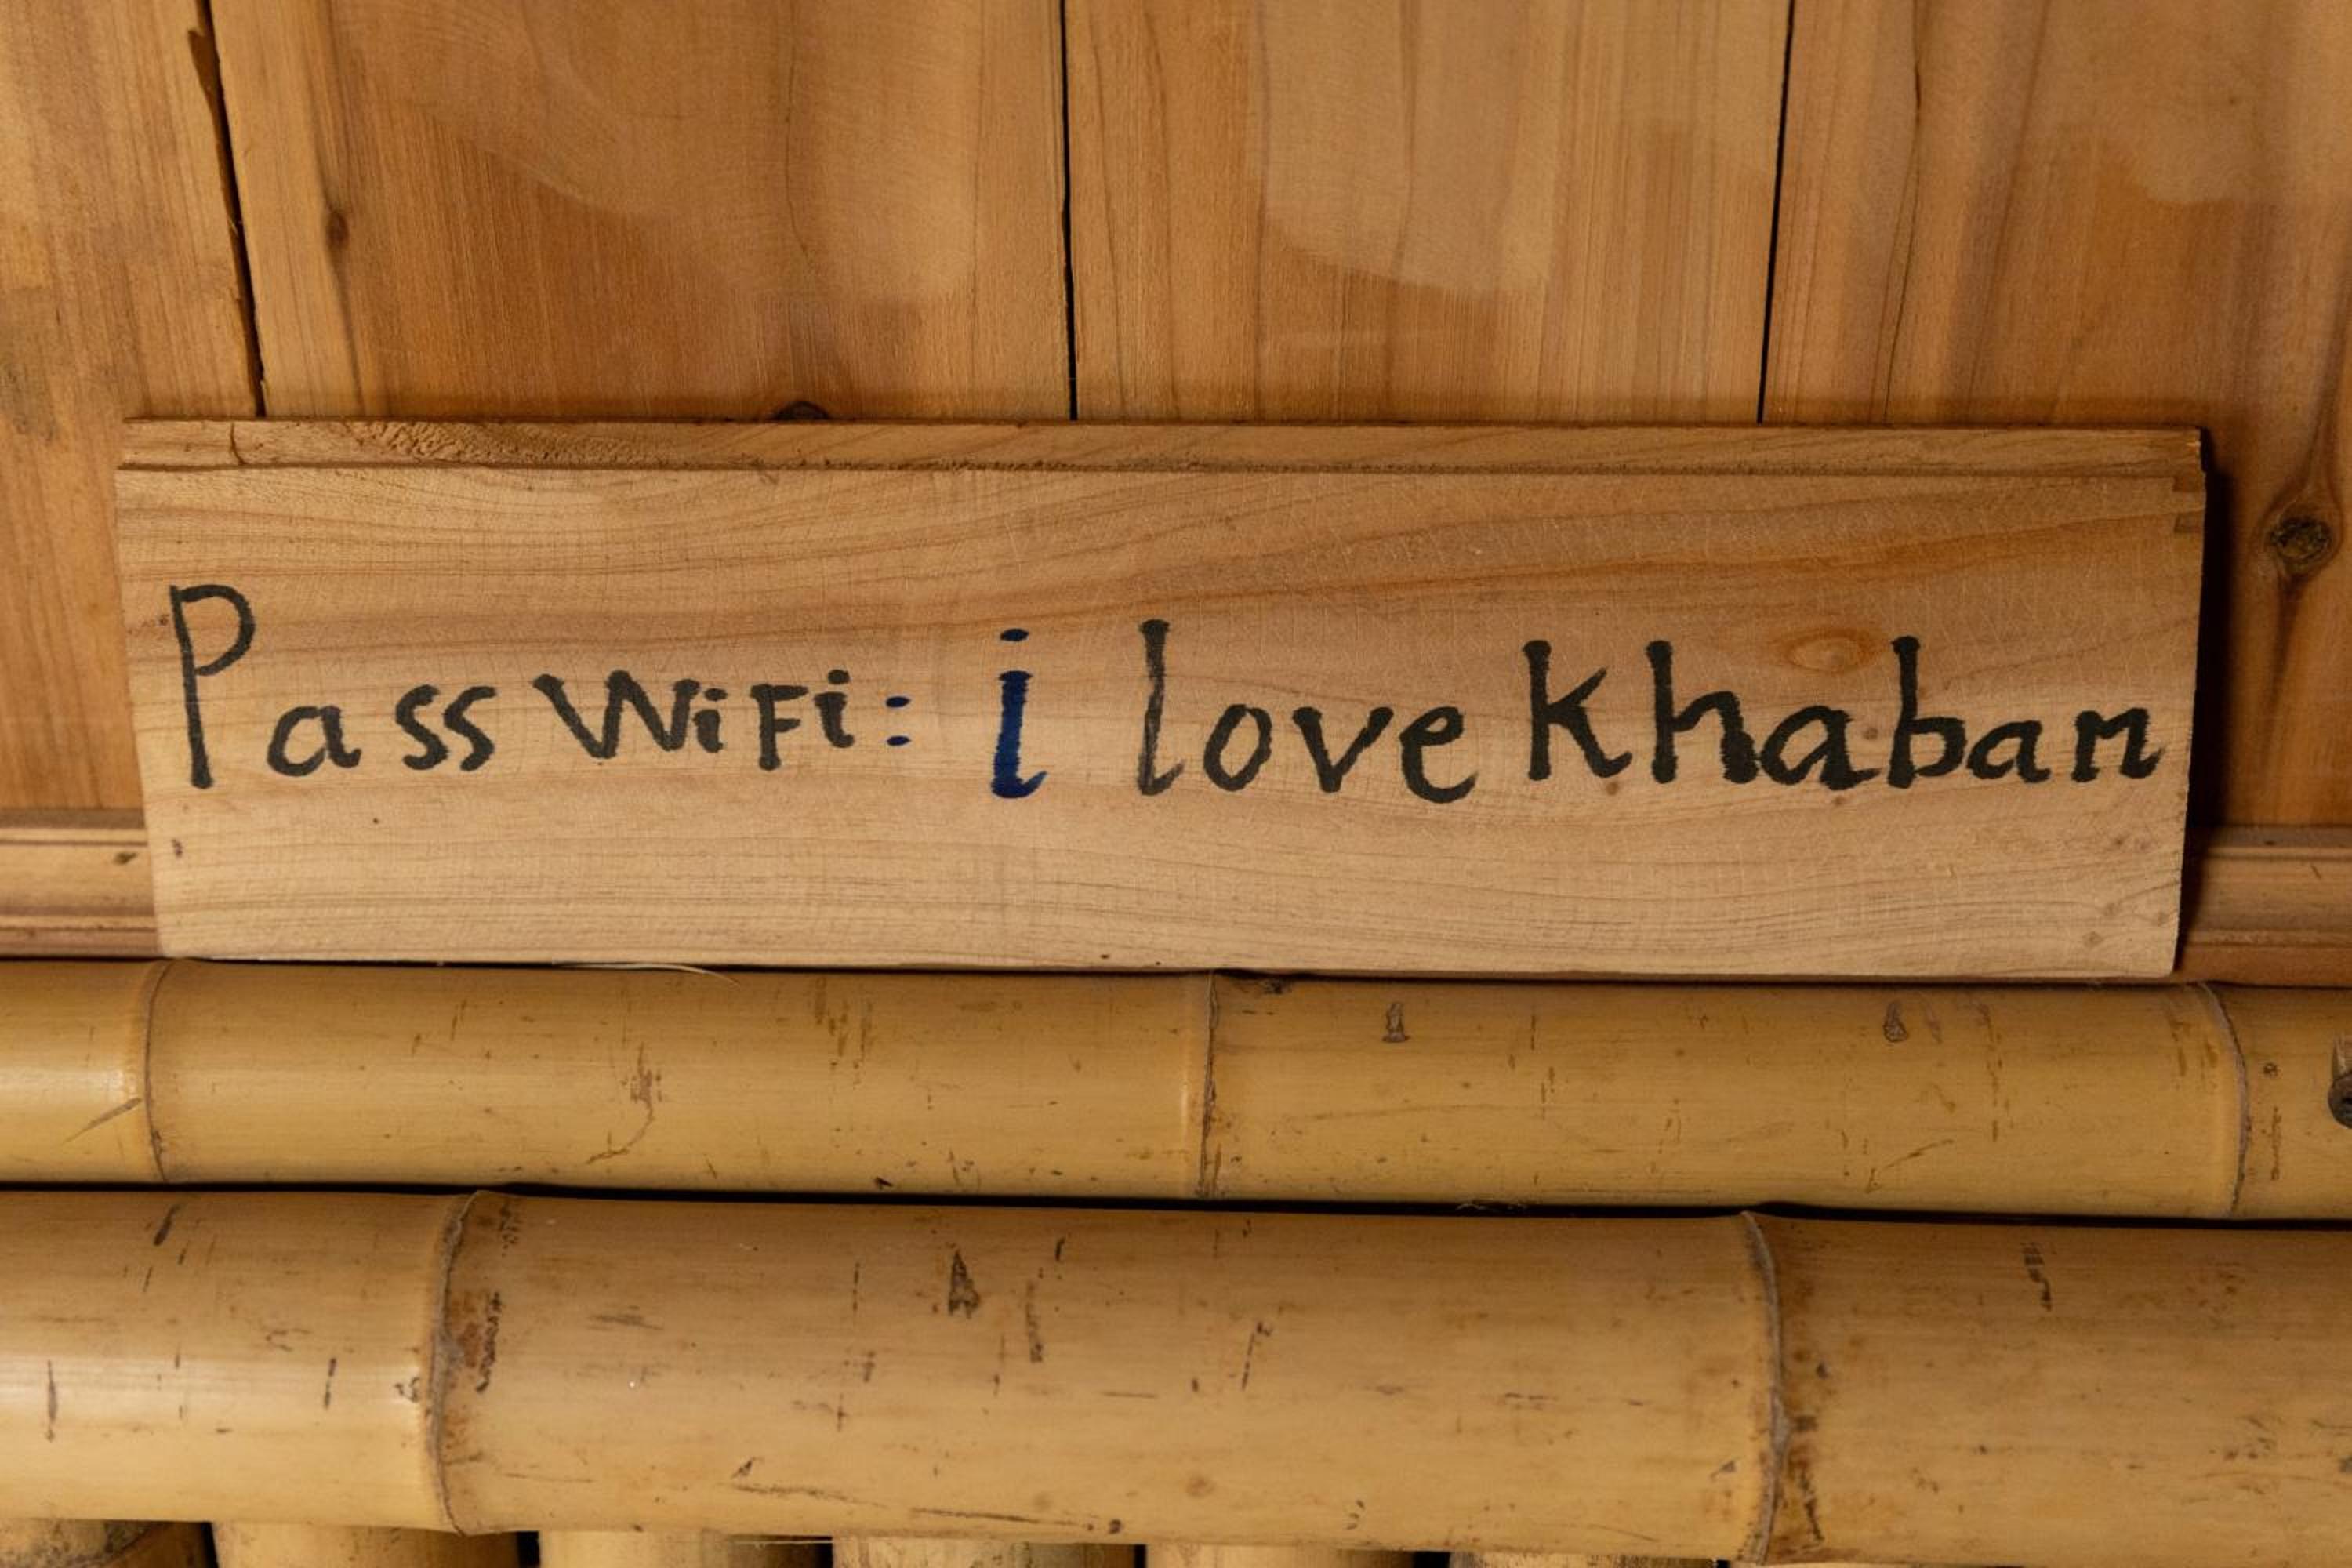 Pass WiFi: i love Khaban